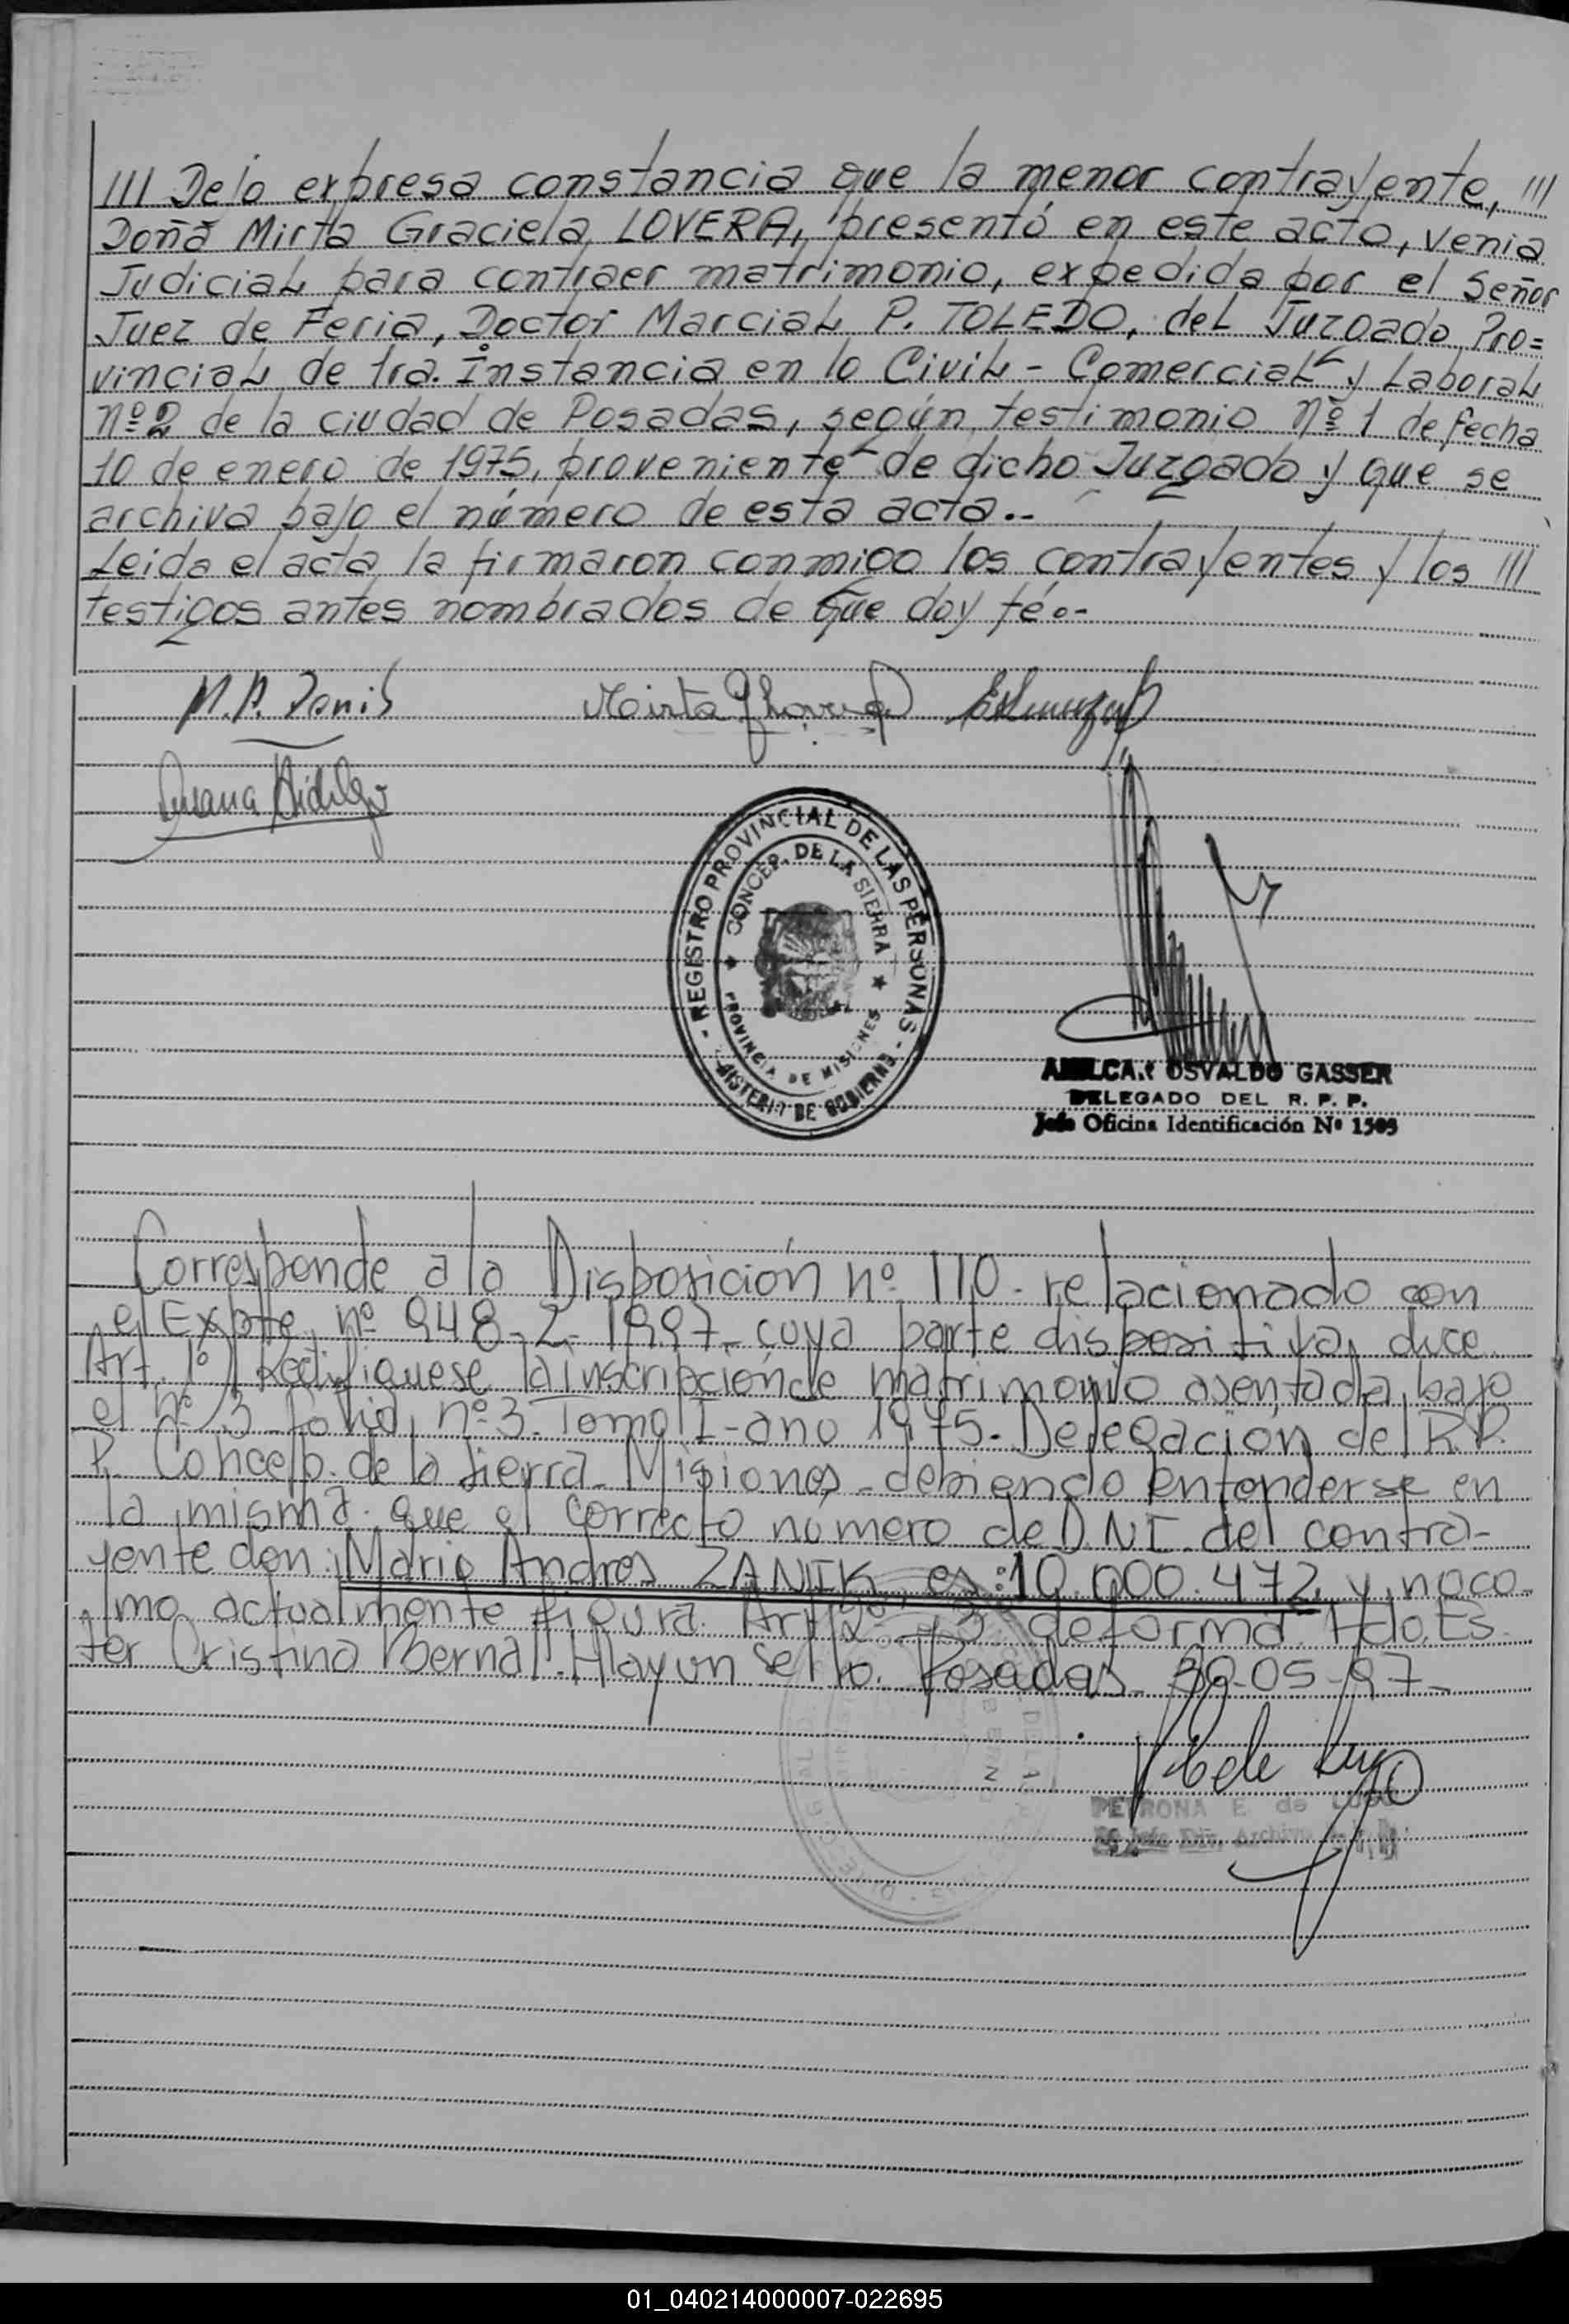 /// Dejo expresa constancia que la menor contrayente, ///
Doña Mirta Graciela LOVERA, presentó en este acto, venia
Judicial para contraer matrimonio, expedida por el Señor
Juez de Feria, Doctor Marcial P. TOLEDO, del Juzgado Pro=
vincial de 1ra. Instancia en lo Civil - Comercial y Laboral
Nº 2 de la ciudad de Posadas, según testimonio Nº 1 de fecha
10 de enero de 1975, proveniente de dicho Juzgado y que se
archiva bajo el número de esta acta.-
Leida el acta la firmaron conmigo los contrayentes y los ///
testigos antes nombrados de que doy fé.-
Mirta
REGISTRO PROVINCIAL DE LAS PERSONAS
CONCEP. DE LA SIERRA
PROVINCIA DE MISIONES
MINISTERIO DE GOBIERNO
AMILCAR OSVALDO GASSER
DELEGADO DEL R. P. P.
Jefe Oficina Identificación Nº 1505
Corresponde a la Disposición nº 110 - relacionado con
el Expte. nº 948-Z-1997- cuya parte dispositiva, dice
Art. 1º) Rectifíquese la inscripción de matrimonio asentada bajo
el nº 3 folio nº 3. Tomo I - año 1975. Delegación del R.P.
P. Concep. de la Sierra - Misiones - debiendo entenderse en
la misma que el correcto número de D.N.I. del contra-
yente don: Mario Andres ZANIK, es: 10.000.472, y no co-
mo actualmente figura. Art. 2º y 3º de forma. Fdo. Es
ter Cristina Bernal. Hay un sello. Posadas 30-05-97-
PETRONA E. de LUGO
Jefe Div. Archivo
01_040214000007-022695